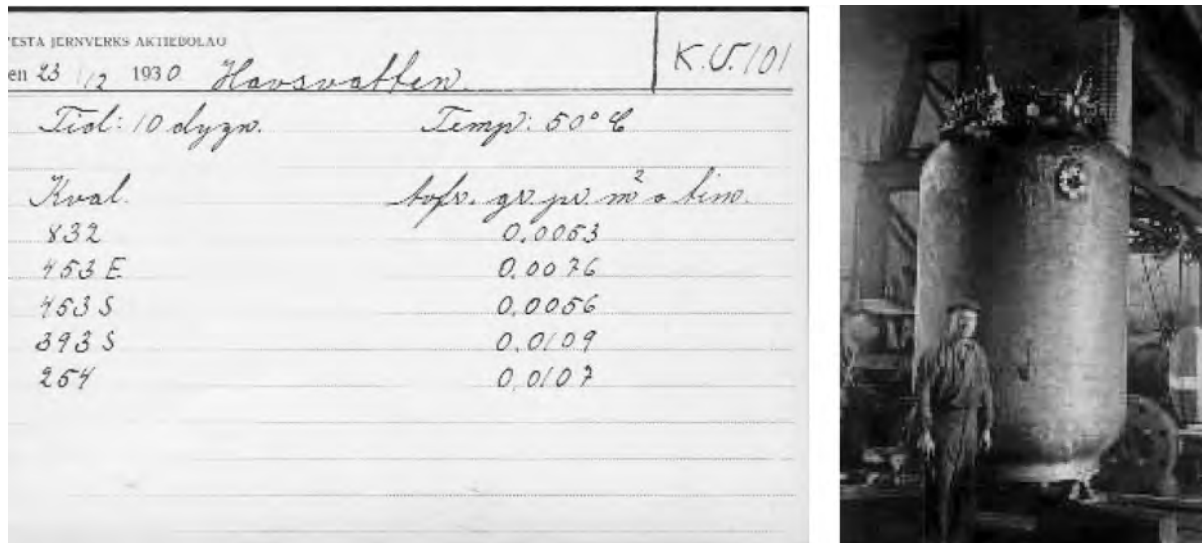 ESTA JERNVERKS AKTIEBOLAG
en 23 /12 1930 Havsvatten. K.U.101
Tid: 10 dygn. Temp: 50° C
Kval. gr. pr. m² o tim.
832 0.0053
453 E 0.0076
453 S 0.0056
393 S 0.0109
254 0.0107